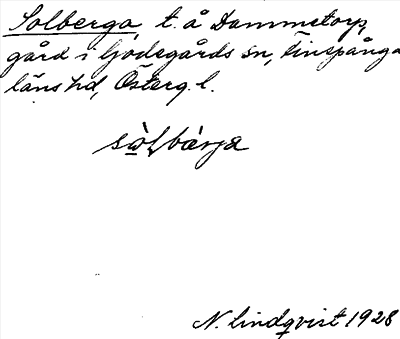 Solberga, t. å Dammetorp,
gård i Godegårds sn, Finspånga
läns hd, Österg. l.
sò̱lbærja
N. Lindqvist 1928